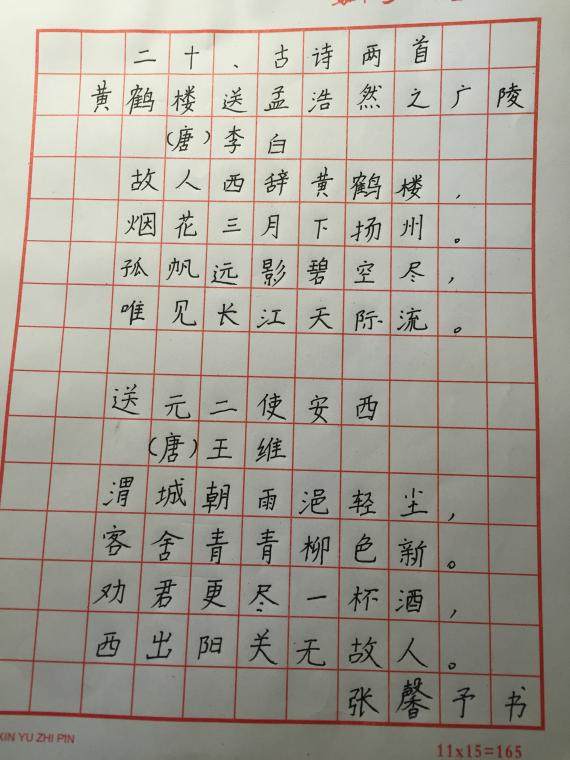 二十、古诗两首
黄鹤楼送孟浩然之广陵
（唐）李白
故人西辞黄鹤楼，
烟花三月下扬州。
孤帆远影碧空尽，
唯见长江天际流。
送元二使安西
（唐）王维
渭城朝雨浥轻尘，
客舍青青柳色新。
劝君更尽一杯酒，
西出阳关无故人。
张馨予书
XIN YU ZHI PIN
11x15=165